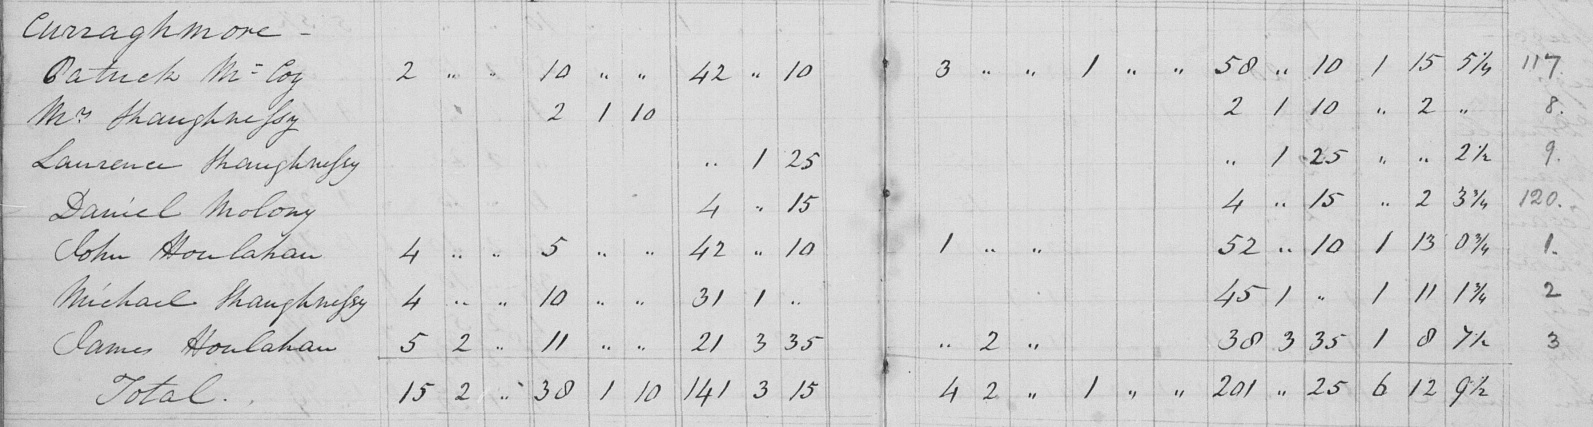 Curraghmore -
Patrick McCoy 2 " " 10 " " 42 " 10 3 " " 1 " " 58 " 10 1 15 5¼ 117.
Mrs Shaughnessy 2 1 10 2 1 10 " 2 " 8.
Laurence Shaughnessy " 1 25 " 1 25 " " 2½ 9.
Daniel Molony 4 " 15 4 " 15 " 2 3¾ 120.
John Houlahan 4 " " 5 " " 42 " 10 1 " " 52 " 10 1 13 0¾ 1.
Michael Shaughnessy 4 " " 10 " " 31 1 " 45 1 " 1 11 1¾ 2
James Houlahan 5 2 " 11 " " 21 3 35 " 2 " 38 3 35 1 8 7½ 3
Total. 15 2 " 38 1 10 141 3 15 4 2 " 1 " " 201 " 25 6 12 9½